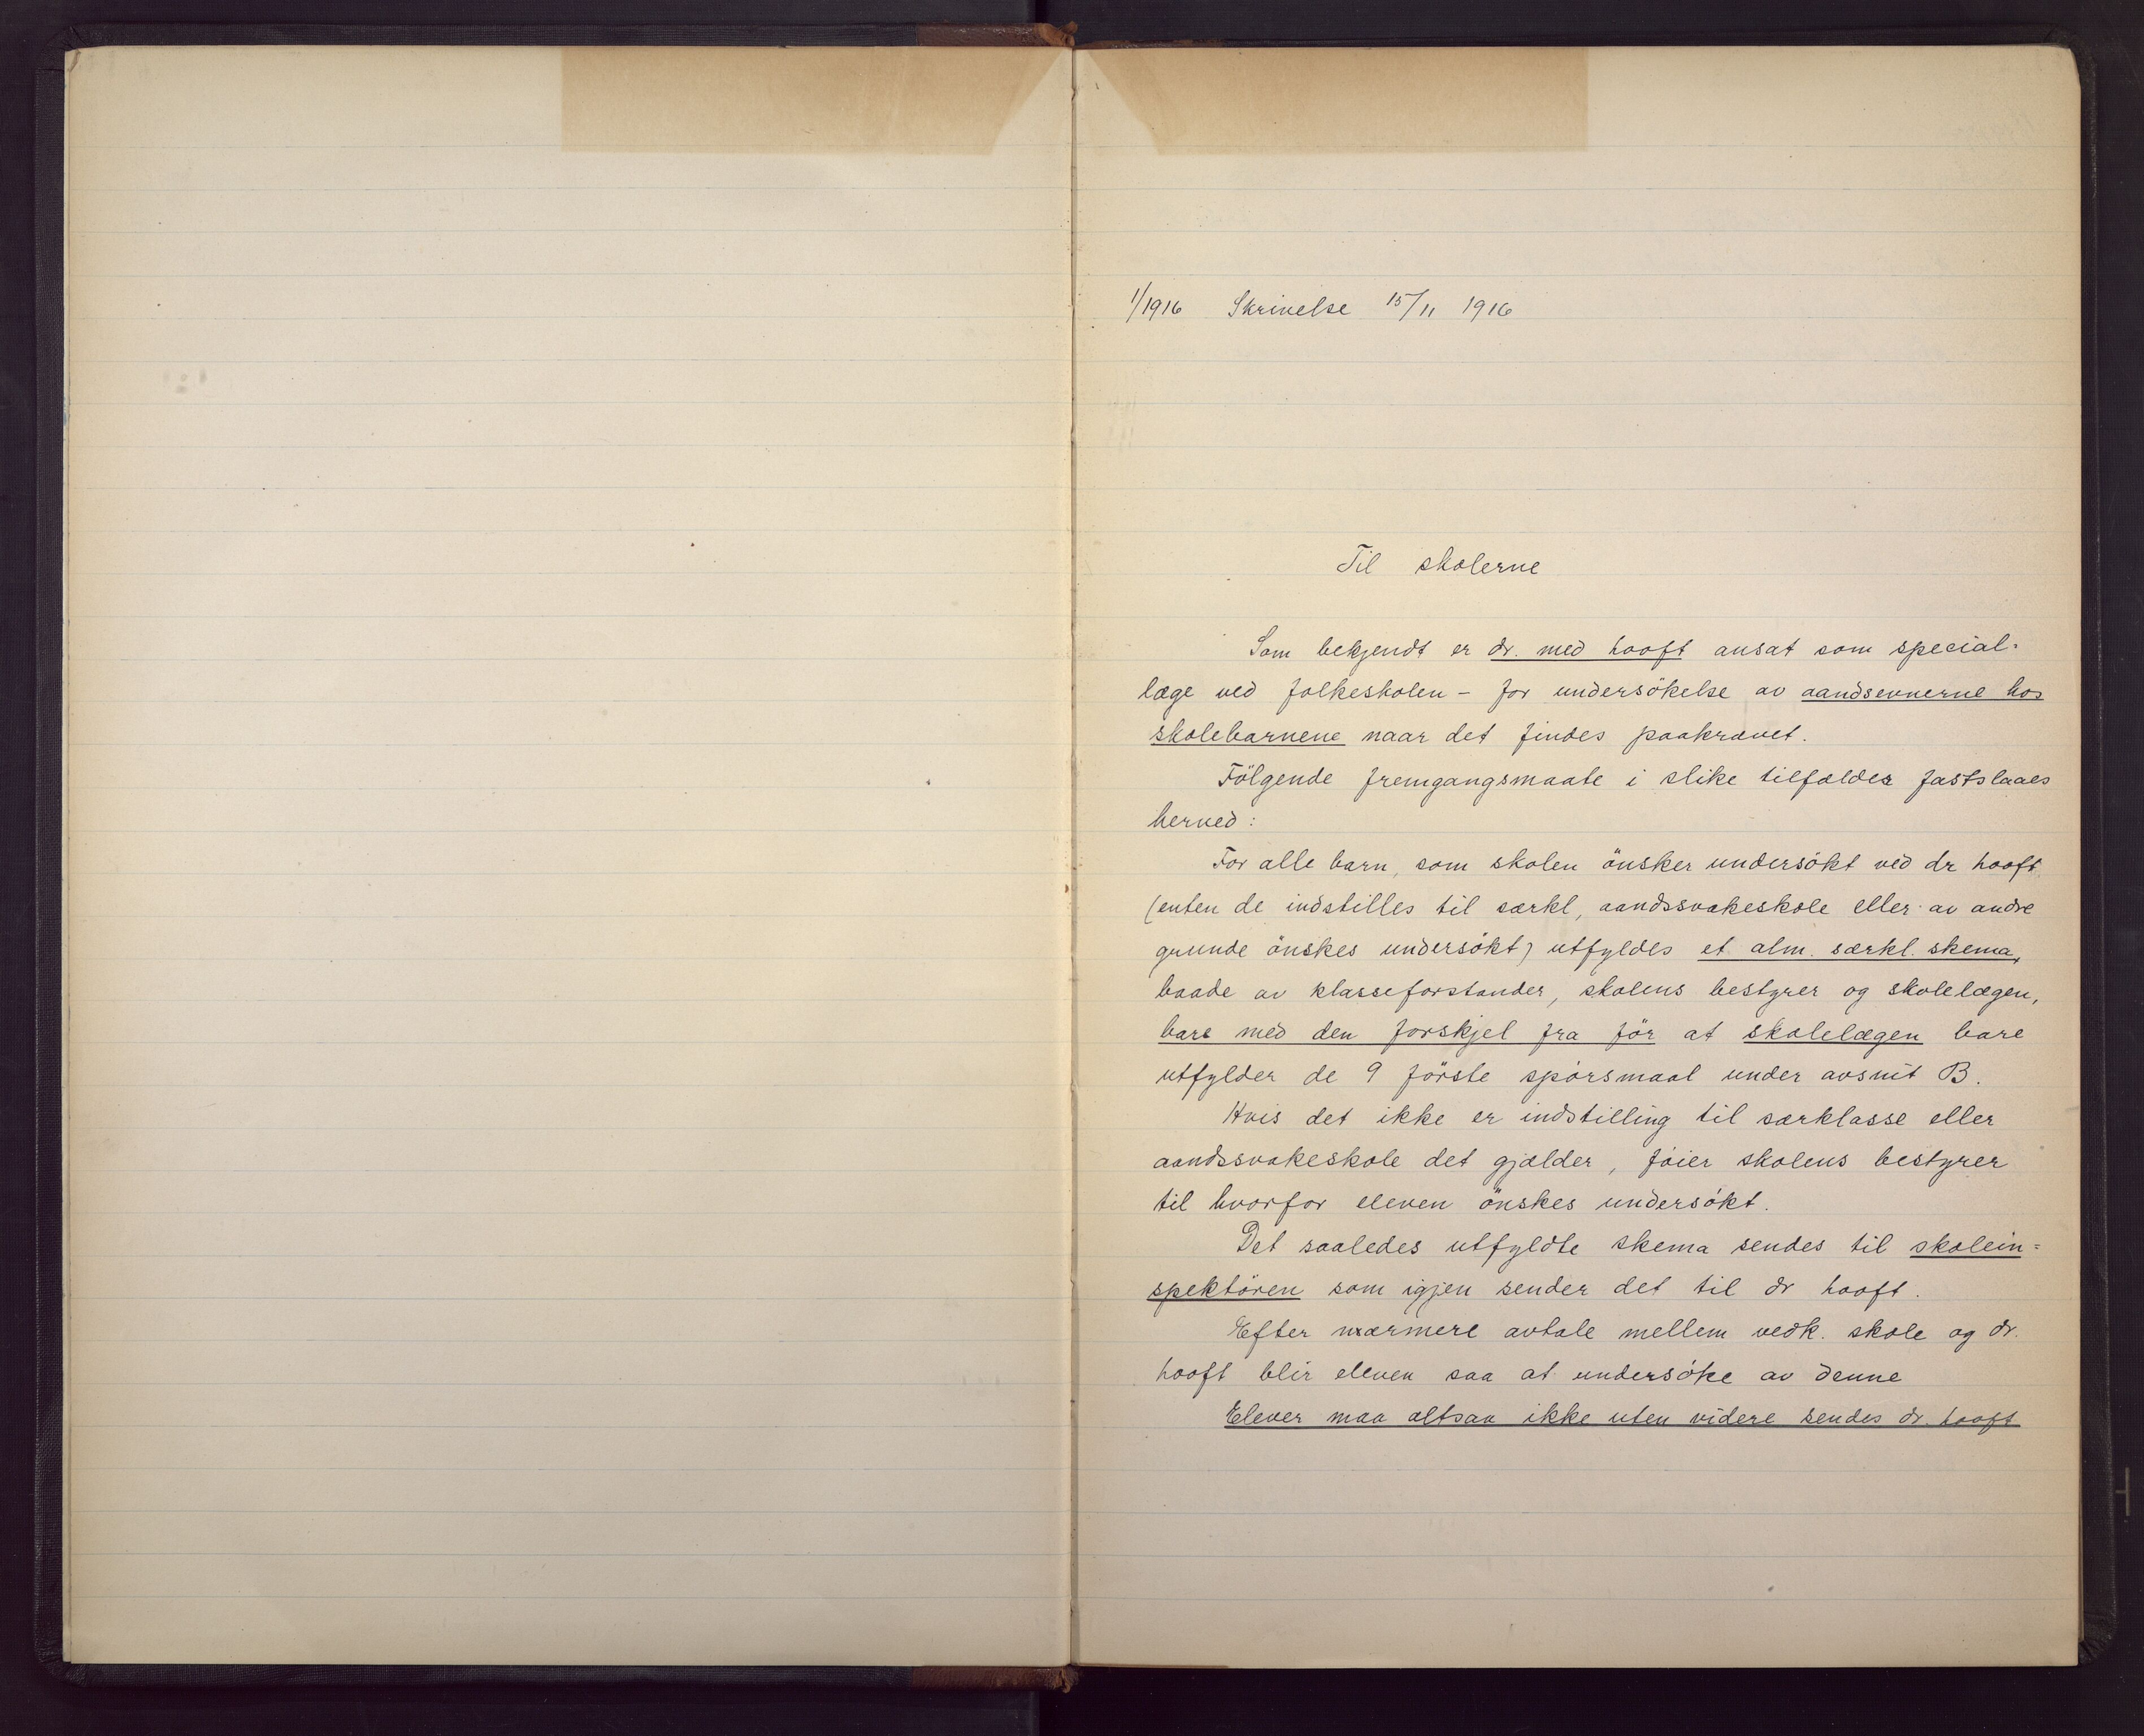 1/1916 Skrivelse 15/11 1916
Til skolerne
Som bekjendt er dr. med hooft ansat som special-
læge ved folkeskolen - for undersökelse av aandsevnerne hos
skolebarnene naar det findes paakrævet.
Fölgende fremgangsmaate i slike tilfælder fastslaaes
herved:
For alle barn, som skolen önsker undersökt ved dr hooft
(enten de indstilles til særkl, aandssvakeskole eller av andre
grunde önskes undersökt) utfyldes et alm. særkl. skema,
baade av klasseforstander, skolens bestyrer og skolelægen,
bare med den forskjel fra för at skolelægen bare
utfylder de 9 förste spörsmaal under avsnit B.
Hvis det ikke er indstilling til særklasse eller
aandssvakeskole det gjælder, föier skolens bestyrer
til hvorfor eleven önskes undersökt.
Det saaledes utfyldte skema sendes til skolein=
spektören som igjen sender det til dr hooft.
Efter nærmere avtale mellem vedk. skole og dr.
hooft blir eleven saa at undersöke av denne
Elever maa altsaa ikke uten videre sendes dr. hooft